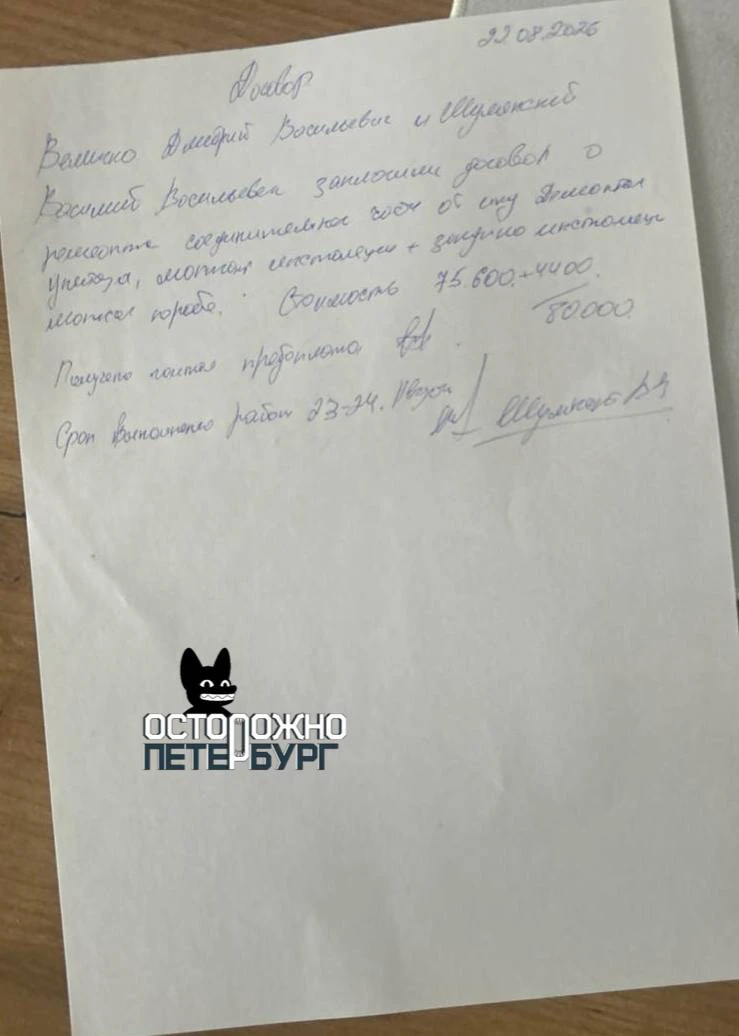 22.08.2026
Договор
Величко Дмитрий Васильевич и
Василий Васильевич заключили договор о
соединительной от Демонтаж
унитаза, монтаж инсталяции + закупка инсталяции
монтаж короба. Стоимость 75.600 + 4400.
80000
Получена полная предоплата
Срок выполнения работ 23-24.
ОСТОРОЖНО
ПЕТЕРБУРГ